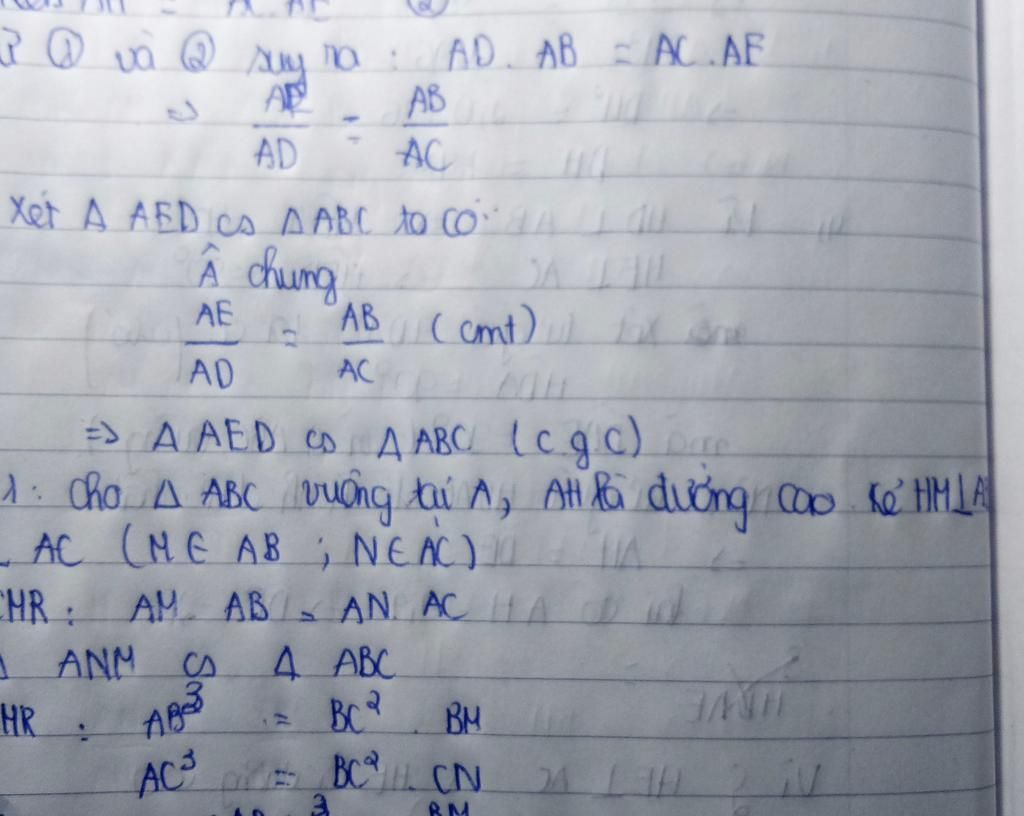 ① và ② suy ra : AD . AB = AC . AE
=> AE/AD = AB/AC
Xét Δ AED ∽ Δ ABC ta có:
Â chung
AE/AD = AB/AC (cmt)
=> Δ AED ∽ Δ ABC (c g c)
1: Cho Δ ABC vuông tại A, AH là đường cao kẻ HM⊥A
AC (M ∈ AB ; N ∈ AC)
CMR : AM . AB = AN . AC
Δ ANM ∽ Δ ABC
MR : AB³ = BC² . BM
AC³ = BC² . CN